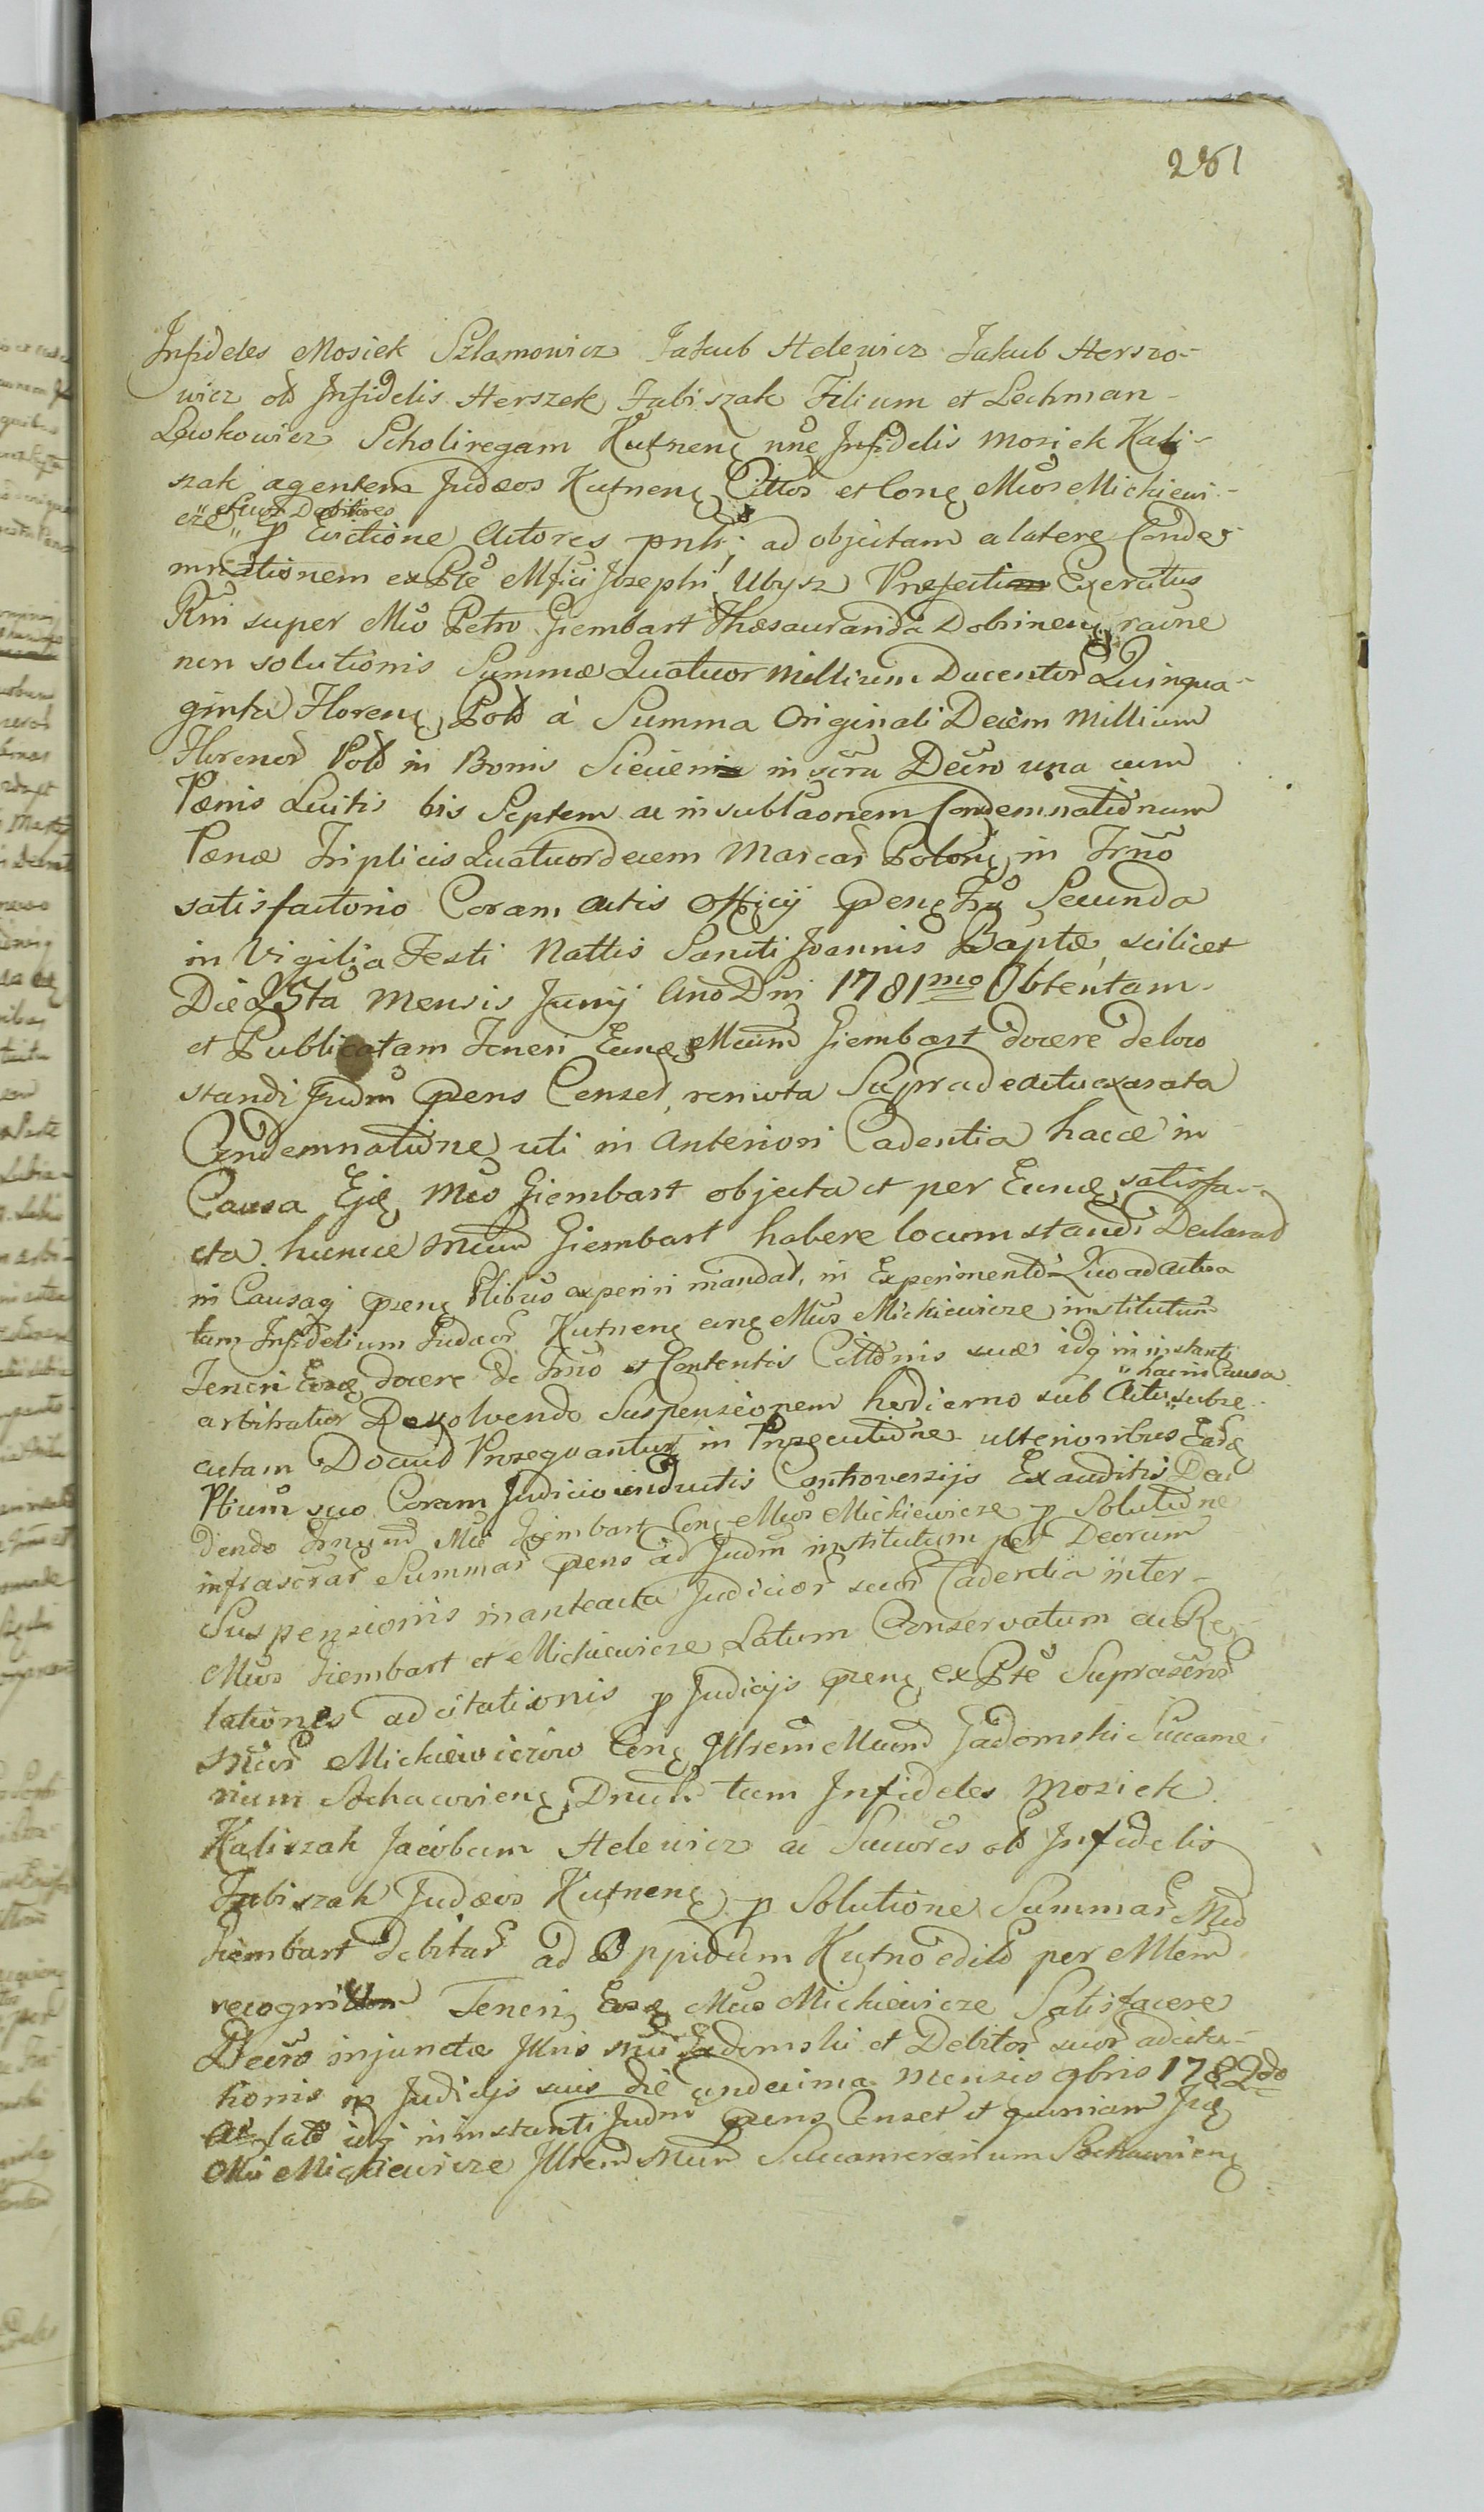 281
Infideles Mosiek Szlamowicz Jakub Helewicz Jakub Herszo-
wicz olb Infidelis Herszek Tabiszak Filium et Lechman
Lewkowicz Scholiregam Kutneng nne Infidelis Mosiek Kali-
szak agentem Judæos Kutneng Cittos et Cong Mcos Mickiewi-
cze
suos Debitores
p Evictione Actores pntr: ad objectam a latere Conde-
mnationem ex Pte Mfici Josephi Ubysz Præfecti Exercitus
Rni super Mco Petro Giembart Thesaurarida Dobrineng raone
non solutionis Summæ Quatuor Millium Ducentor Quinqua-
ginta Floreng Pold à Summa Originali Decem Millium
Florenor Pold in Bonis Siecienie inscra Decro una cum
Pænis Luitis bis Septem ac in sublaonem Condemnationum
Pænæ Triplicis Quatuordecem Marcar Polong in Trno
satisfactorio Coram Actis Officij pens Fra Secunda
in Vigilia Festi Nattis Sancti Joannis Baptæ scilicet
Die 23tia Mensis Junij Ano Dni 1781mo Obtentam
et Publicatam Teneri Eung Mcum Giembart docere de loco
standi Judm pens Censet, remota Suprad eactu exarata
Condemnatione uti in Anteriori Cadentia hacce in
Causa Ejg Mco Giembart objecta et per Eung satisfa-
cta hunce Mcum Giembart habere locum standi Declarad
in Causaq preng Ptibus experiri mandat, in Experimento Quo ad Actora
tum Infidelium Judæor Kutneng ang Mcos Mickiewicze institutum
Teneri Eosg docere de Trno et Contentis Cittonis suæ idq in instanti
arbitratur Dexolvendo Suspensionem hodierno sub Actu subse
hac in Causa
cutam Docuid Prosequantur in Prosecutione ulterioribus Eadg
Ptium suo Coram Judicio inductis Controversijs Exauditis Deci
dendo Trnum Mci Giembart Cong Mcos Mickiewicze p Solutione
infrascrar Summar pens ad Judm institutum per Decrum
Suspensionis in anteacta Judicior suor Cadentia inter
Mcos Giembart et Mickiewicze Latum Conservatum ac Re-
lationes adcitationis p Judicijs preng ex Pte Suprascrs
Mcor Mickiewiczow Cong Illrem Mcum Gadomski Succame-
rium Sochacvieng, Dnum tum Infideles Mosiek
Kaliszak Jacobum Helewicz ac Succores olb Infidelis
Tabiszak Judæos Kutneng p Solutione Summar Mco
Giembart debitar ad Oppidum Kutno edild per Mlem
recognit Teneri Eosg Mcos Mickiewicze Satisfacere
Decro injunctæ Illris Mci Gadomski et Debitor suor adcita-
tionis p Judicijs suis die undecima Mensis 9bris 1782do
at lato idq in instanti Judm pens Censet et quoniam Idg
Mci Mickiewicze Illrem Mcum Succamerarium Sochacvieng